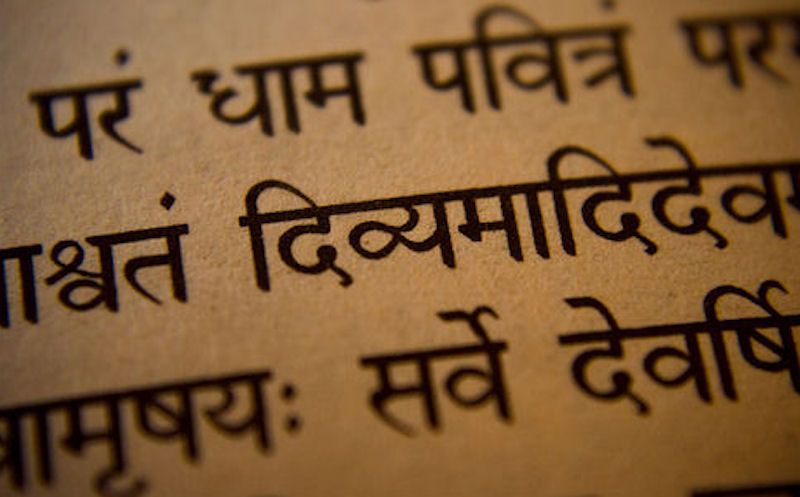 परं धाम पवित्रं पर
ाश्वतं दिव्यमादिदेव
ामृषयः सर्वे देवर्षि